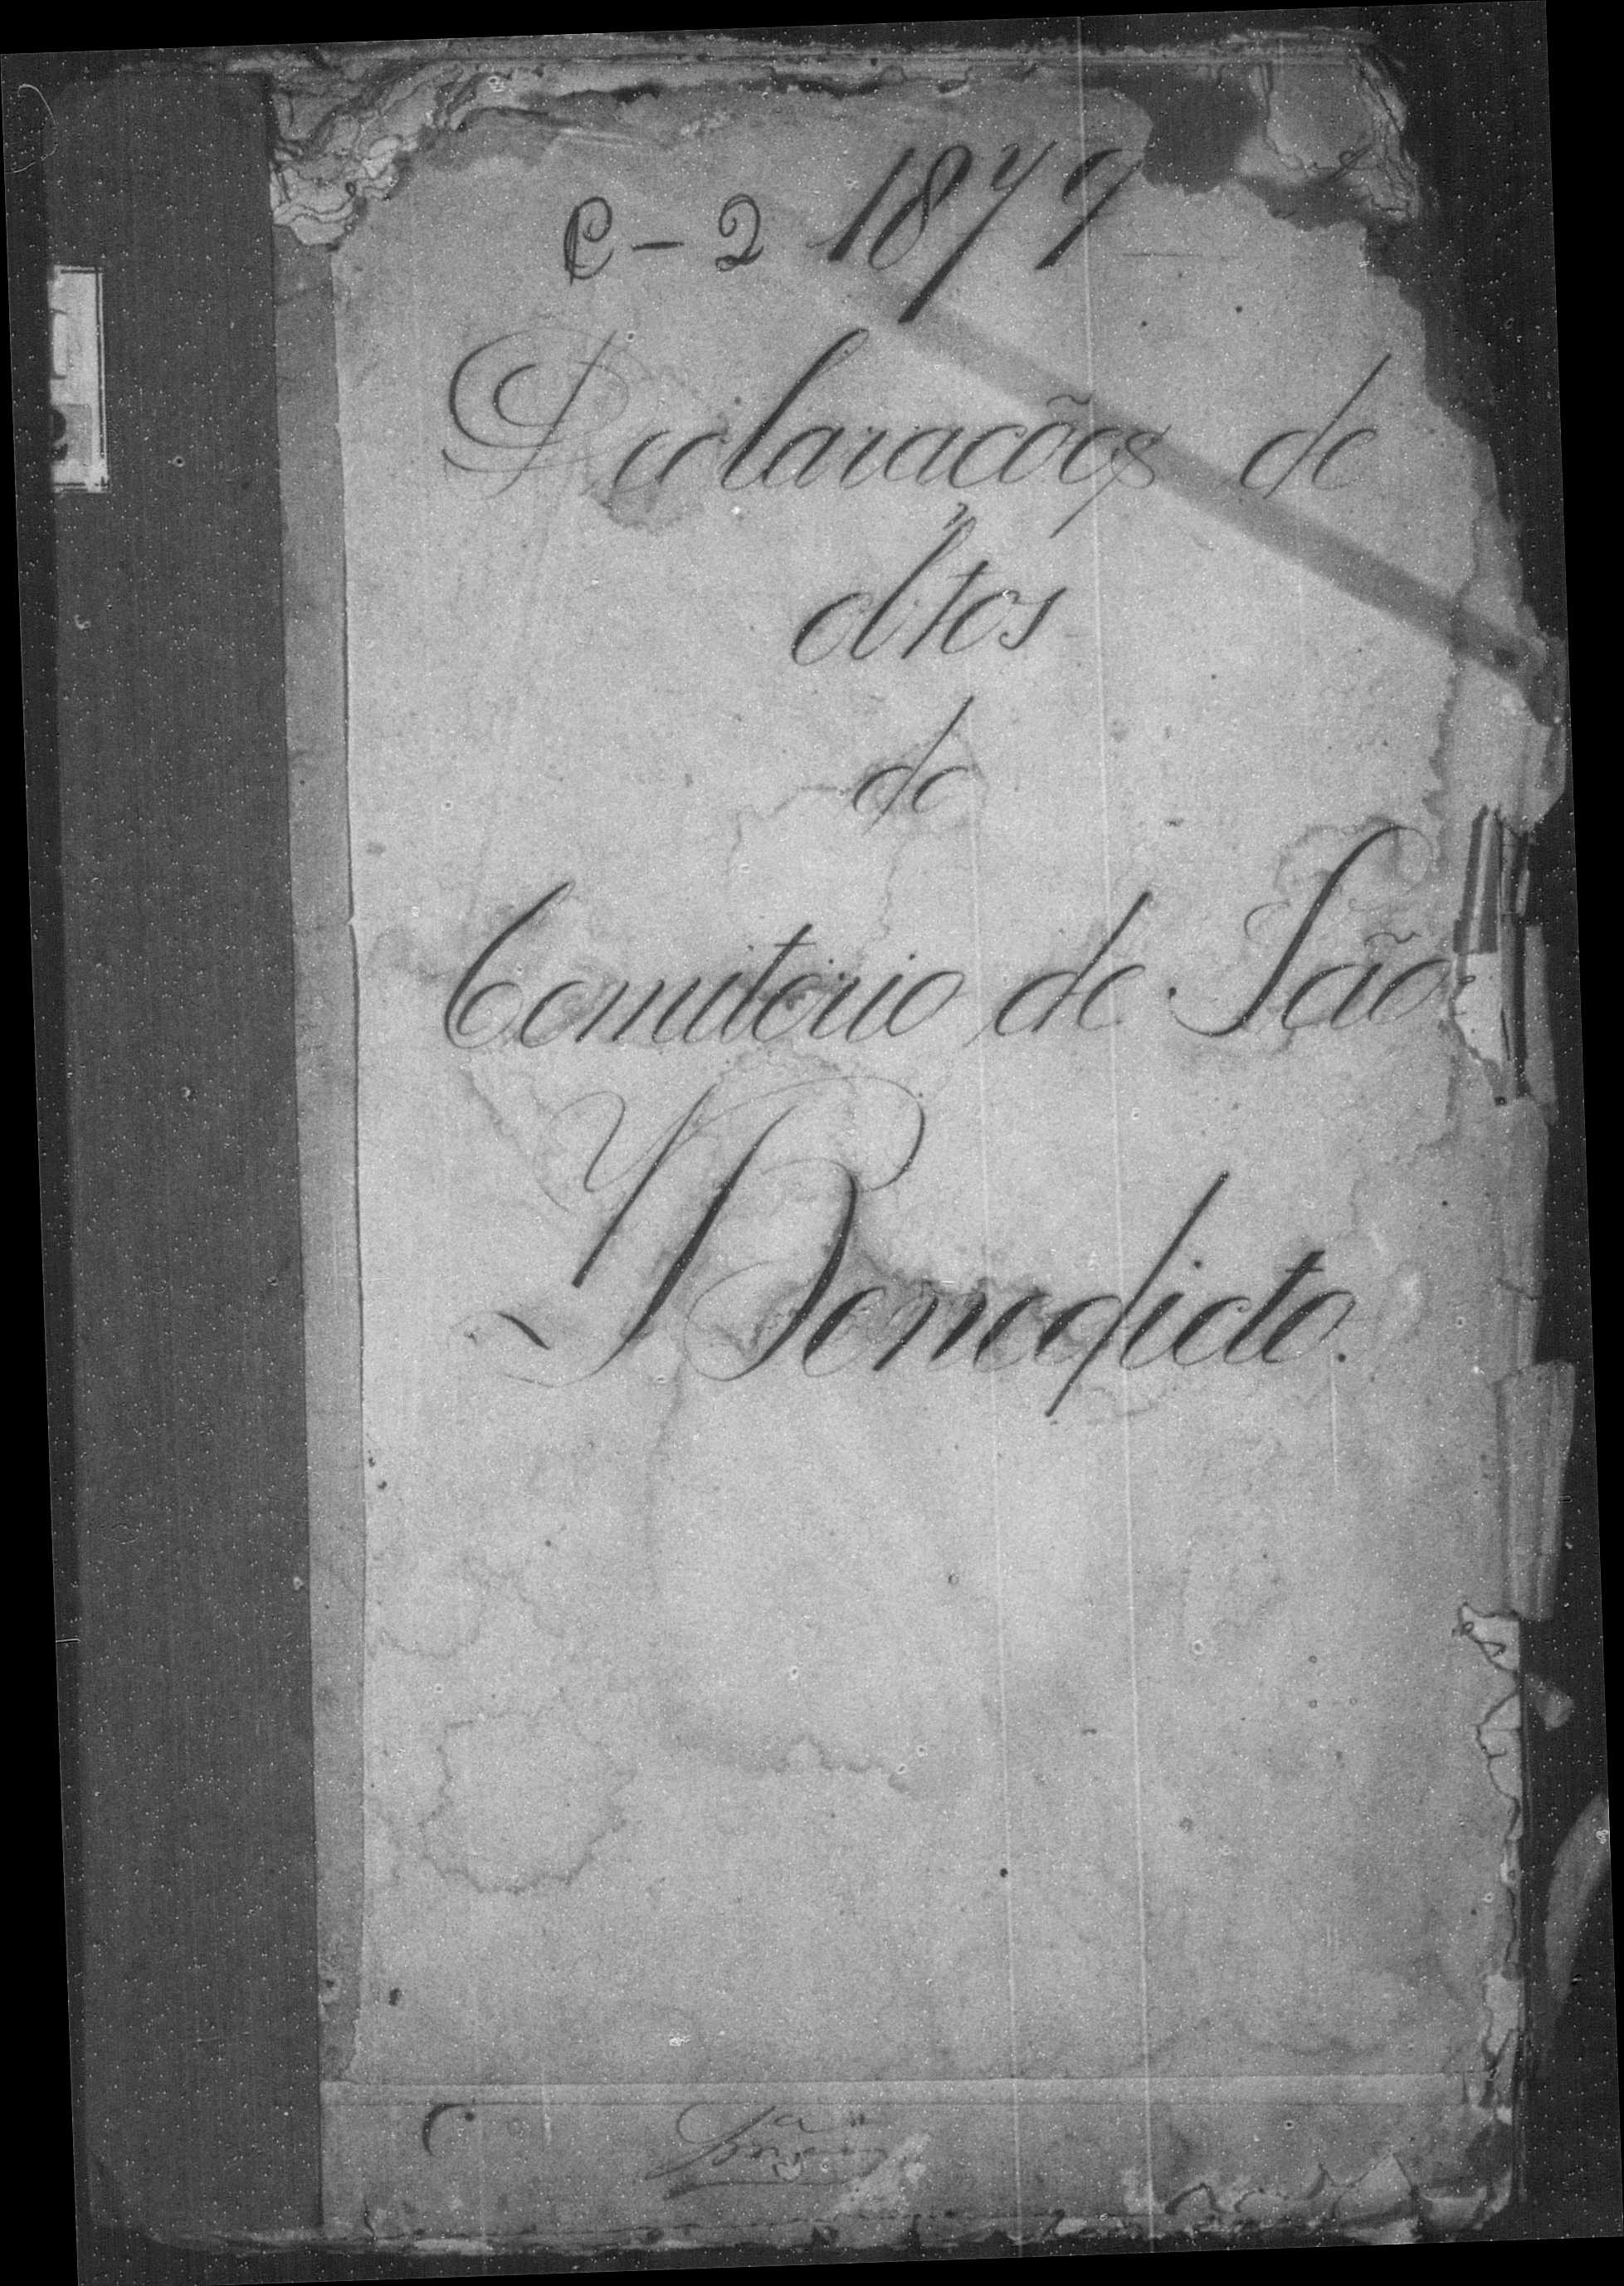 C-2 1879
Declarações de
obtos
do
Cemiterio de São
Benedicto.